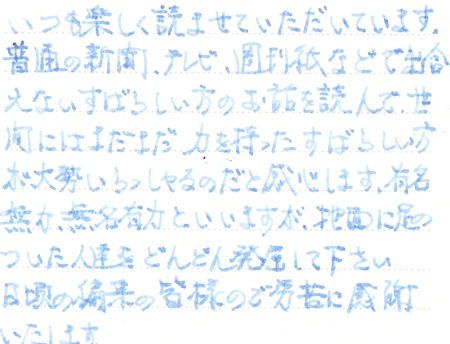 いつも楽しく読ませていただいています。
普通の新聞、テレビ、週刊紙などで出会
えないすばらしい方のお話を読んで、世
間にはまだまだ力を持ったすばらしい方
が大勢いらっしゃるのだと感心します。有名
無力、無名有力といいますが、地面に足の
ついた人達をどんどん発掘して下さい
日頃の編集の皆様のご労苦に感謝
いたします